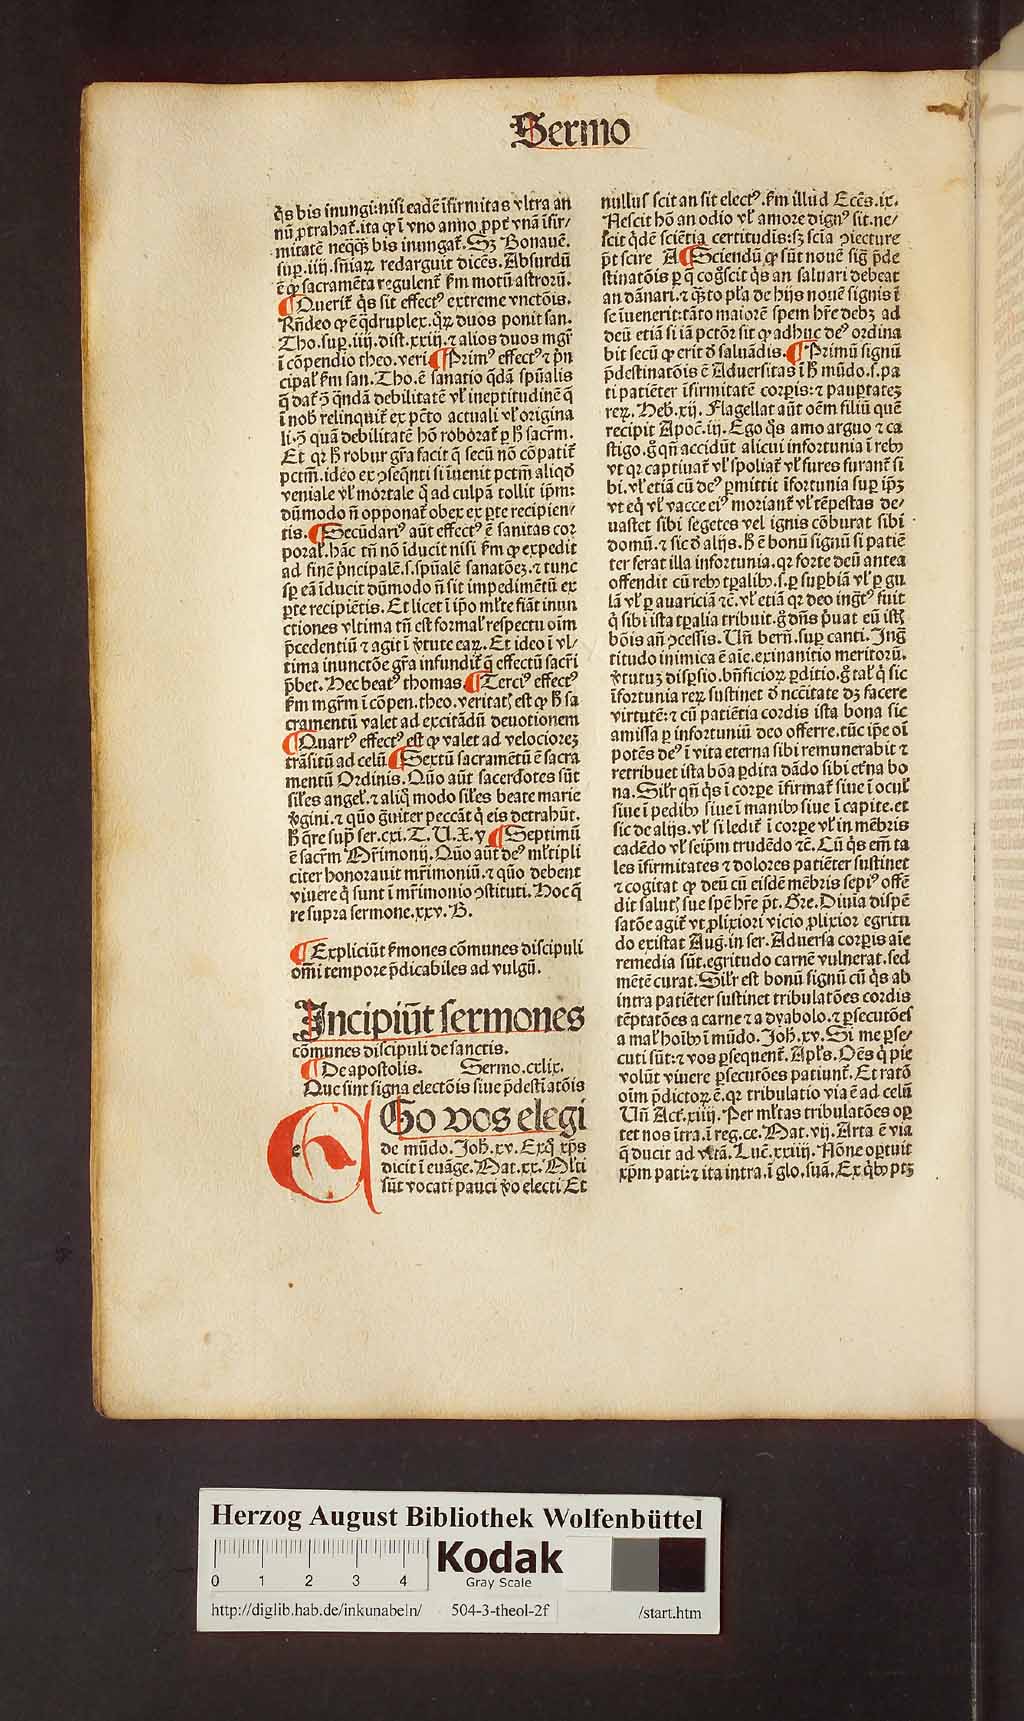 Sermo
q̃s bis inungi: nisi eadē īfirmitas vltra an
nū ꝓtrahat̃. ita ꝙ ī vno anno ꝓpt̃ vnā īfir/
mitatē neq̃q̃ bis inungat̃. Sꝫ Bonauē.
suꝑ. iiij. sñiaꝝ redarguit dicēs. Absurdū
ē ꝙ sacramēta regulent̃ fm̄ motū astroꝝ.
¶ Querit̃ q̃s sit effectꝰ extreme vnctōis.
Rñdeo ꝙ ē q̃druplex. qꝝ duos ponit san.
Tho. suꝑ. iiij. dist. xxiij. ⁊ alios duos mgr̃
ī cōpendio theo. veri. ¶ Primꝰ effectꝰ ⁊ p̃n
cipal̃ fm̄ san. Tho. ē sanatio q̃dā spūalis
q̃ dat̃ ꝯ̃ q̃ndā debilitatē vl̓ ineptitudinē q̃
ī nob̃ relinquit̃ ex pc̄to actuali vl̓ origina
li. ꝯ̃ quā debilitatē hō roborat̃ ꝑ ħ sacr̄m.
Et qr ħ robur gr̃a facit q̃ secū nō cōpatit̃
pctm̄. ideo ex ꝯseq̃nti si īuenit pctm̄ aliqd̓
veniale vl̓ mortale q̃ ad culpā tollit ip̄m:
dūmodo ñ opponat̃ obex ex ꝑte recipien/
tis. ¶ Secūdariꝰ aūt effectꝰ ē sanitas cor
poral̃. hāc tñ nō īducit nisi fm̄ ꝙ expedit
ad finē p̃ncipalē. s. spūalē sanatōeꝫ. ⁊ tunc
sp̱ eā īducit dūmodo ñ sit impedimētū ex
ꝑte recipiētis. Et licet ī ip̄o ml̓te fiāt inun
ctiones vltima tñ est formal̓ respectu oīm
p̃cedentiū ⁊ agit ī ṽtute eaꝝ. Et ideo ī vl/
tima inunctōe gr̃a infundit̃ q̃ effectū sacr̃i
p̃bet. Hec beatꝰ thomas. ¶ Terciꝰ effectꝰ
fm̄ mgr̄m ī cōpen. theo. veritat̃ est ꝙ ħ sa
cramentū valet ad excitādū deuotionem
¶ Quartꝰ effectꝰ est ꝙ valet ad velocioreꝫ
trāsitū ad celū. ¶ Sextū sacramētū ē sacra
mentū Ordinis. Quō aūt sacerdotes sūt
sil̓es angel̃. ⁊ aliq̃ modo sil̓es beate marie
ṽgini. ⁊ quō g̃uiter peccāt q̃ eis detrahūt.
ħ q̃re sup̃ ser. cxi. T. U. X. y ¶ Septimū
ē sacr̄m Mr̄imonij. Quō aūt deꝰ ml̓tipli
citer honorauit mr̄imoniū. ⁊ quō debent
viuere q̃ sunt ī mr̄imonio ꝯstituti. Hoc q̃
re supra sermone. xxv. B.
¶ Expliciūt s̓mones cōmunes discipuli
om̄i tempore p̃dicabiles ad vulgū.
Incipiūt sermones
cōmunes discipuli de sanctis.
¶ De apostolis. Sermo. cxlix.
Que sint signa electōis siue p̃destīatōis
EGo vos elegi
de mūdo. Joh̃. xv. Exq̃ xp̄s
dicit ī euāge. Mat. xx. Ml̓ti
sūt vocati pauci ṽo electi Et
nullus scit an sit electꝰ. fm̄ illud Eccs̄. ix.
Nescit hō an odio vl̓ amore dignꝰ sit. ne/
scit q̃dē sciētia certitudis: sꝫ scīa ꝯiecture
p̄t scire A ¶ Sciendū ꝙ sūt nouē sig̃ p̃de
stinatōis ꝑ q̃ cog̃scit q̃s an saluari debeat
an dānari. ⁊ q̃to pl̓a de hijs nouē signis ī
se īuenerit: tāto maiorē spem hr̃e debꝫ ad
deū etiā si iā pctōr sit ꝙ adhuc deꝰ ordina
bit secū ꝙ erit d̓ saluādis. ¶ Primū signū
p̃destinatōis ē Aduersitas ī ħ mūdo. s. pa
ti patiēter īfirmitatē corꝑis: ⁊ pauꝑtateꝫ
reꝝ. Heb. xij. Flagellat aūt oēm filiū quē
recipit Apoc̄. iij. Ego q̃s amo arguo ⁊ ca
stigo. g̊ qñ accidūt alicui infortunia ī rebꝰ
vt qr captiuat̃ vl̓ spoliat̃ vl̓ fures furant̃ si
bi. vl̓ etiā cū deꝰ ꝑmittit īfortunia suꝑ ip̄ꝫ
vt eq̃ vl̓ vacce eiꝰ moriant̃ vl̓ tēpestas de/
uastet sibi segetes vel ignis cōburat sibi
domū. ⁊ sic d̓ alijs. ħ ē bonū signū si patiē
ter ferat illa infortunia. qr forte deū antea
offendit cū rebꝰ tꝑalibꝰ. s. ꝑ suꝑbiā vl̓ ꝑ gu
lā vl̓ ꝑ auariciā ⁊c̄. vl̓ etiā qr deo ing̃tꝰ fuit
q̃ sibi ista tꝑalia tribuit. g̊ dñs p̃uat eū ist̃
bōis añ ꝯcessis. Uñ bern̄. suꝑ canti. Ing̃
titudo inimica ē aīe. exinanitio meritoꝝ.
ṽtutuꝫ disꝑsio. bñficioꝝ ꝑditio. g̊ tal̓ q̃ sic
īfortunia reꝝ sustinet d̓ nc̄citate dꝫ facere
virtutē: ⁊ cū patiētia cordis ista bona sic
amissa ꝑ infortuniū deo offerre. tūc ip̄e oī
potēs deꝰ ī vita eterna sibi remunerabit ⁊
retribuet ista bōa ꝑdita dādo sibi et̓na bo
na. Sil̓r qñ q̃s ī corꝑe īfirmat̃ siue ī ocul̓
siue ī pedibꝰ siue ī manibꝰ siue ī capite. et
sic de alijs. vl̓ si ledit̃ ī corꝑe vl̓ in mēbris
cadēdo vl̓ seip̄m trudēdo ⁊c̄. Cū q̃s em̄ ta
les īfirmitates ⁊ dolores patiēter sustinet
⁊ cogitat ꝙ deū cū eisdē mēbris sepiꝰ offē
dit salut̃ sue spē hr̃e p̄t. Gre. Diuīa dispē
satōe agit̃ vt ꝓlixiori vicio ꝓlixior egritu
do existat Aug. in ser. Aduersa corꝑis aīe
remedia sūt. egritudo carnē vulnerat. sed
mētē curat. Sil̓r est bonū signū cū q̃s ab
intra patiēter sustinet tribulatōes cordis
tēptatōes a carne ⁊ a dyabolo. ⁊ ꝑsecutōes
a mal̓ hoībꝰ ī mūdo. Joh̃. xv. Si me ꝑse/
cuti sūt: ⁊ vos ꝑsequent̃. Apl̓s. Oēs q̃ pie
volūt viuere ꝑsecutōes patiunt̃. Et ratō
oīm p̃dictoꝝ ē. qr tribulatio via ē ad celū
Uñ Act̃. xiiij. Per ml̓tas tribulatōes oꝑ
tet nos ītra. ī reg. ce. Mat. vij. Arta ē via
q̃ ducit ad vitā. Luc̄. xxiiij. Nōne oꝑtuit
xp̄m pati: ⁊ ita intra. ī glo. suā. Ex q̃bꝰ ptꝫ
Herzog August Bibliothek Wolfenbüttel
0 1 2 3 4
Kodak
Gray Scale
http://diglib.hab.de/inkunabeln/ 504-3-theol-2f /start.htm